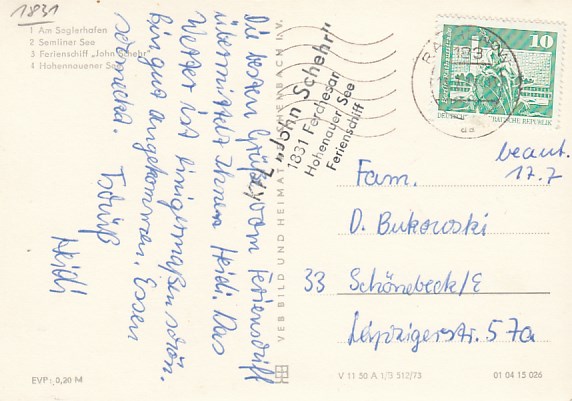 1831
1 Am Seglerhafen
2 Semliner See
3 Ferienschiff „John Schehr"
4 Hohennauener See
Die besten Grüße vom Ferienschiff
übermittelt Ihnen Heidi. Das
Wetter ist einigermaßen schön.
Bin gut angekommen. Essen
schmeckt. Tschüß
Heidi
EVP: 0,20 M
VEB BILD UND HEIMAT REICHENBACH I. V.
KTL „John Schehr"
1831 Ferchesar
Hohenauer See
Ferienschiff
10
DEUTSCHE DEMOKRATISCHE REPUBLIK
beant.
17.7
Fam.
D. Bukowski
33 Schönebeck/E
Leipzigerstr. 57a
V 11 50 A 1/3 512/73
01 04 15 026